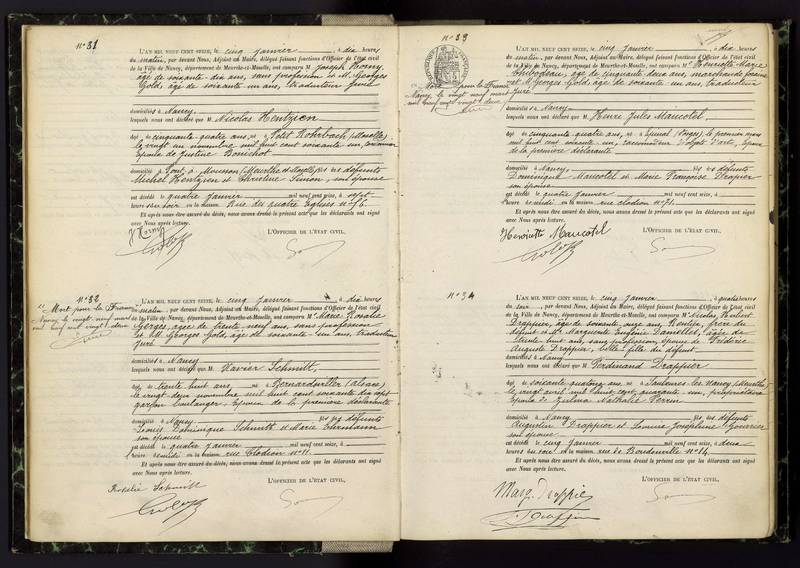 N° 31
L'AN MIL NEUF CENT SEIZE, le cinq janvier, à dix heures
du matin, par devant Nous, Adjoint au Maire, délégué faisant fonctions d'Officier de l'état civil
de la Ville de Nancy, département de Meurthe-et-Moselle, ont comparu M. Joseph
âgé de soixante-dix ans, sans profession et M. Georges
Gold, âgé de soixante un ans, traducteur juré
domiciliés à Nancy
lesquels nous ont déclaré que M. Nicolas Hentzien
âgé de cinquante quatre ans, né à Petit Rohrbach (Moselle)
le vingt un novembre mil huit cent soixante un,
Epoux de Justine Bonichot
domicilié à Pont à Mousson (Meurthe et Moselle), fils des défunts
Michel Hentzien et Christine Simon, son épouse
est décédé le quatre janvier mil neuf cent seize, à sept
heures du soir en la maison Rue des quatre Eglises n° 56
Et après nous être assuré du décès, nous avons dressé le présent acte que les déclarants ont signé
avec Nous après lecture.
L'OFFICIER DE L'ÉTAT CIVIL,
N° 32
Mort pour la France
Nancy, le vingt neuf mars
mil neuf cent vingt deux
L'AN MIL NEUF CENT SEIZE, le cinq janvier, à dix heures
du matin, par devant Nous, Adjoint au Maire, délégué faisant fonctions d'Officier de l'état civil
de la Ville de Nancy, département de Meurthe-et-Moselle, ont comparu Me Marie Rosalie
Georges, âgée de trente neuf ans, sans profession
et M. Georges Gold, âgé de soixante un ans, traducteur
juré
domiciliés à Nancy
lesquels nous ont déclaré que M. Xavier Schmitt,
âgé de trente huit ans, né à Bernardviller (Alsace)
le vingt deux novembre mil huit cent soixante dix sept
garçon boulanger, Epoux de la première déclarante
domicilié à Nancy, fils des défunts
Louis Dominique Schmitt et Marie Ehrmann
son épouse
est décédé le quatre janvier mil neuf cent seize, à
heures en la maison rue Clodion n° 11.
Et après nous être assuré du décès, nous avons dressé le présent acte que les déclarants ont signé
avec Nous après lecture.
L'OFFICIER DE L'ÉTAT CIVIL,
Rosalie Schmitt
N° 33
Mort pour la France
Nancy, le vingt neuf mars
mil neuf cent vingt deux
L'AN MIL NEUF CENT SEIZE, le cinq janvier, à dix heures
du matin, par devant Nous, Adjoint au Maire, délégué faisant fonctions d'Officier de l'état civil
de la Ville de Nancy, département de Meurthe-et-Moselle, ont comparu Me Henriette Marie
Thibodeau, âgée de cinquante deux ans, marchande foraine
et M. Georges Gold, âgé de soixante un ans, traducteur
juré
domiciliés à Nancy
lesquels nous ont déclaré que M. Henri Jules Maucotel
âgé de cinquante quatre ans, né à Epinal (Vosges), le premier mars
mil huit cent soixante un, d'objets d'art, époux
de la première déclarante
domicilié à Nancy, fils des défunts
Dominique Maucotel et Marie Françoise Drappier
son épouse
est décédé le quatre janvier mil neuf cent seize, à
heures en la maison rue Clodion n° 71.
Et après nous être assuré du décès, nous avons dressé le présent acte que les déclarants ont signé
avec Nous après lecture.
Henriette Maucotel
L'OFFICIER DE L'ÉTAT CIVIL,
N° 34
L'AN MIL NEUF CENT SEIZE, le cinq janvier, à quatre heures
du soir, par devant Nous, Adjoint au Maire, délégué faisant fonctions d'Officier de l'état civil
de la Ville de Nancy, département de Meurthe-et-Moselle, ont comparu M. Nicolas
Drappier, âgé de soixante onze ans, Rentier, frère du
défunt et Me Marguerite, âgée de
trente huit ans, sans profession, épouse de Frédéric
Auguste Drappier, belle fille du défunt
domiciliés à Nancy
lesquels nous ont déclaré que M. Ferdinand Drappier
âgé de soixante quatorze ans, né à Saulxures les Nancy (Meurthe)
le vingt avril mil huit cent quarante un, propriétaire
Epoux de Zulma Nathalie Perrin
domicilié à Nancy, fils des défunts
Augustin Drappier et Josephine
son épouse
est décédé le cinq janvier mil neuf cent seize, à deux
heures du soir en la maison rue de n° 84.
Et après nous être assuré du décès, nous avons dressé le présent acte que les déclarants ont signé
avec Nous après lecture.
L'OFFICIER DE L'ÉTAT CIVIL,
Marg. Drappier